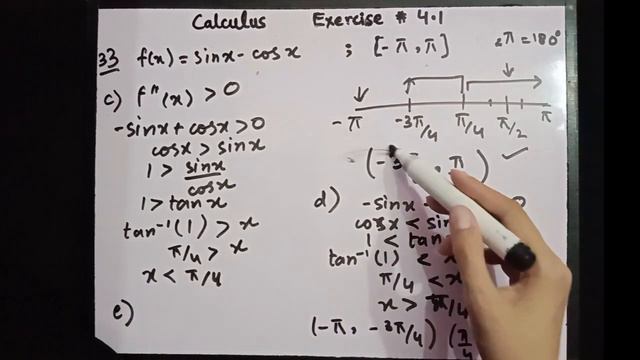 Calculus Exercise # 4.1
33 f(x) = sinx - cosx ; [-π, π] , π = 180°
c) f"(x) > 0
-sinx + cosx > 0
cosx > sinx
1 > sinx/cosx
1 > tanx
tan⁻¹(1) > x
π/4 > x
x < π/4
e)
-π -3π/4 π/4 π/2 π
(-3 , π )
d) -sinx 0
cosx < sin
1 < tan
tan⁻¹(1) <
π/4 < x
x > π/4
(-π, -3π/4) (π/4